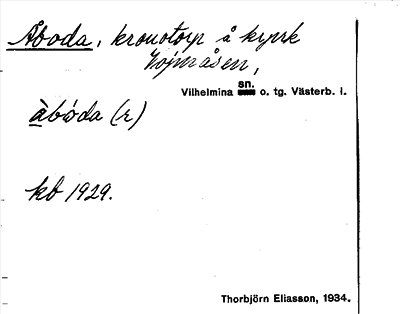 Åboda, kronotorp å kyrk
Vojmåsen,
Vilhelmina sn. o. tg. Västerb. l.
åbóda (r)
kb 1929.
Thorbjörn Eliasson, 1934.